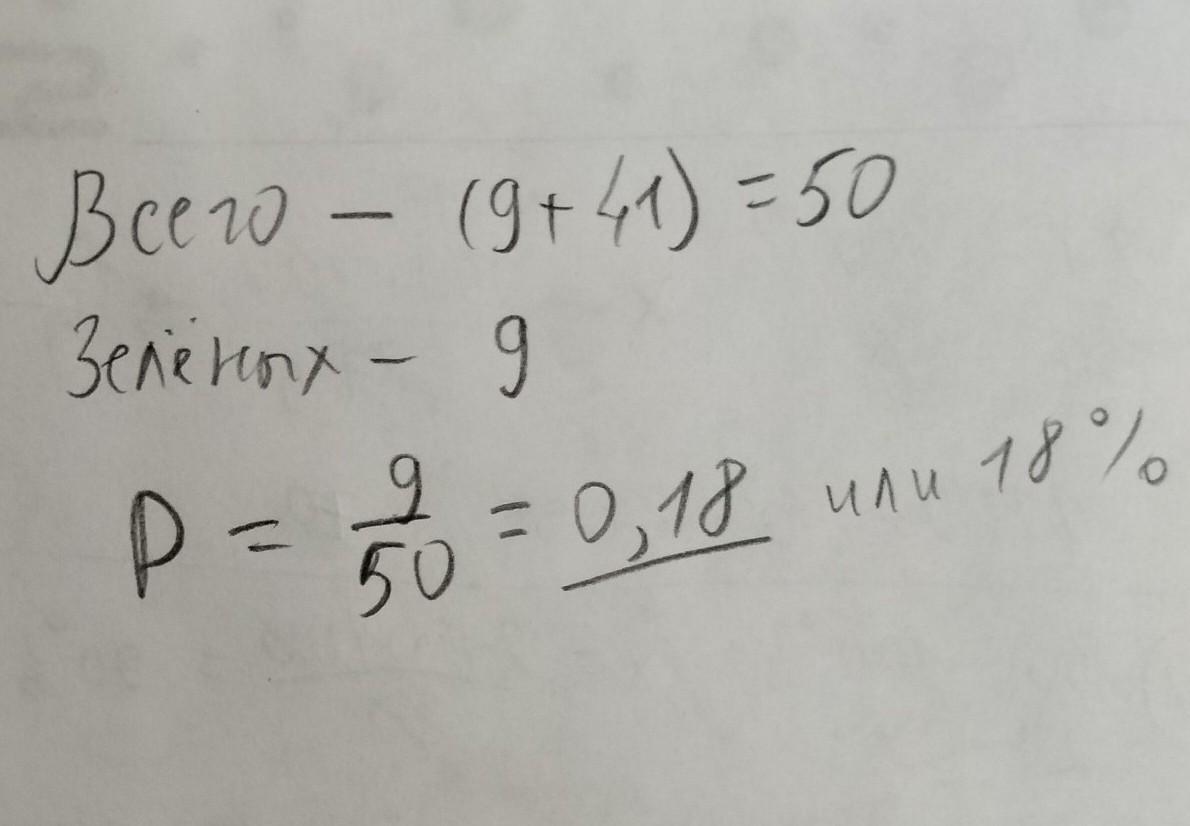 Всего - (9+41) = 50
Зелёных - 9
P = 9/50 = 0,18 или 18%